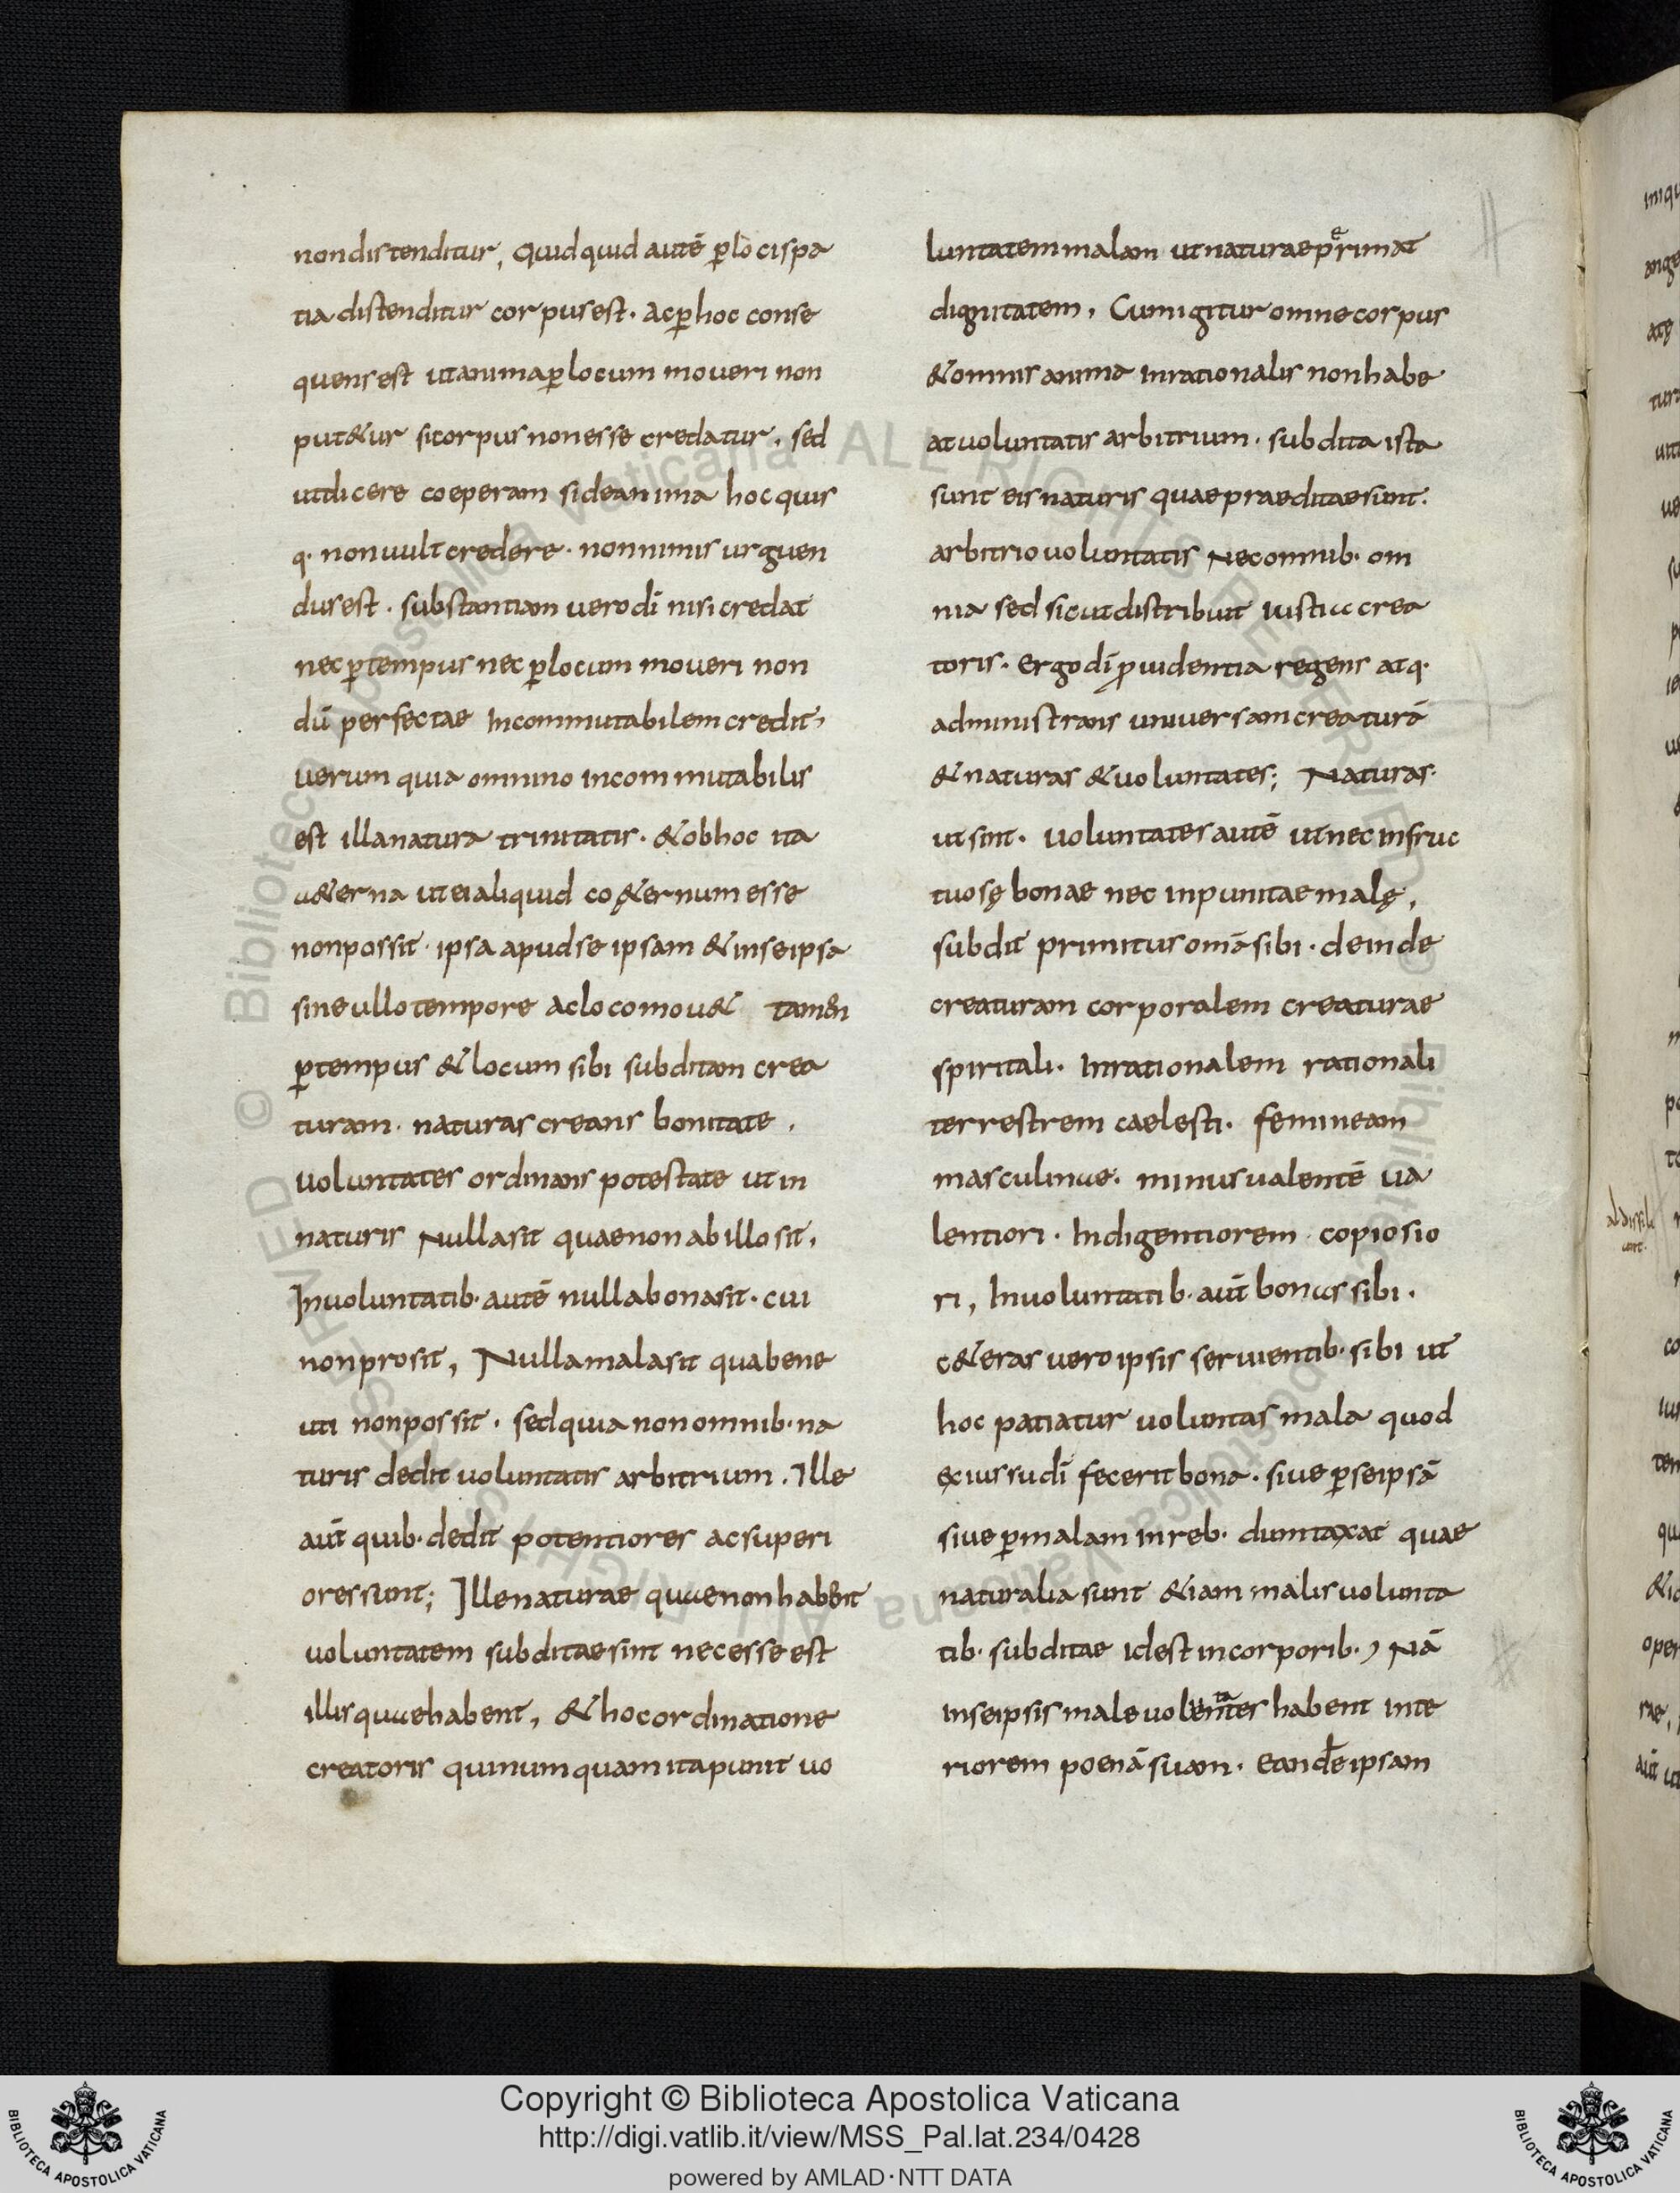 non distenditur, Quidquid autē ꝑ loci spa
tia distenditur corpus est. ac ꝑ hoc conse
quens est ut anima ꝑ locum moueri non
put&ur si corpus non esse credatur. sed
ut dicere coeperam si de anima hoc quis
q· non uult credere. non nimis urguen
dus est. substantiam uero dī nisi credat
nec ꝑ tempus nec ꝑ locum moueri non
dū perfectae incommutabilem credit,
uerum quia omnino incommutabilis
est illa natura trinitatis. & ob hoc ita
a&erna ut ei aliquid co&ernum esse
non possit. ipsa apud se ipsam & in se ipsa
sine ullo tempore ac loco mou& tamen
ꝑ tempus & locum sibi subditam crea
turam. naturas creans bonitate.
uoluntates ordinans potestate ut in
naturis nulla sit quae non ab illo sit.
In uoluntatib· autē nulla bona sit. cui
non prosit, Nulla mala sit qua bene
uti non possit. sed quia non omnib· na
turis dedit uoluntatis arbitrium. Ille
aūt quib· dedit potentiores ac superi
ores sunt; Ille naturae quae non habent
uoluntatem subditae sint necesse est
illis quae habent, & hoc ordinatione
creatoris qui numquam ita punit uo
luntatem malam ut naturae perimat
dignitatem. Cum igitur omne corpus
& omnis anima inrationalis non habe
at uoluntatis arbitrium. subdita ista
sunt eis naturis quae praeditae sunt.
arbitrio uoluntatis nec omnib· om
nia sed sicut distribuit iustia crea
toris. ergo dī ꝓuidentia regens atq·
administrans uniuersam creaturā
& naturas & uoluntates; Naturas.
ut sint. uoluntates autē ut nec infruc
tuosę bonae nec inpunitae malę,
subdit primitus omā sibi. deinde
creaturam corporalem creaturae
spiritali. inrationalem rationali
terrestrem caelesti. femineam
masculinae. minus ualentē ua
lentiori. indigentiorem copiosio
ri, In uoluntatib· aūt bonas sibi.
c&eras uero ipsis seruientib· sibi ut
hoc patiatur uoluntas mala quod
ex iussu dī fecerit bona. siue ꝑ se ipsā
siue ꝑ malam in reb· dumtaxat quae
naturalia sunt &iam malis uolunta
tib· subditae id est in corporib·, Nā
in se ipsis male uoluntates habent inte
riorem poenā suam. Eandē ipsam
© Biblioteca Apostolica Vaticana ALL RIGHTS RESERVED
Copyright © Biblioteca Apostolica Vaticana
http://digi.vatlib.it/view/MSS_Pal.lat.234/0428
powered by AMLAD·NTT DATA
BIBLIOTECA APOSTOLICA VATICANA
BIBLIOTECA APOSTOLICA VATICANA